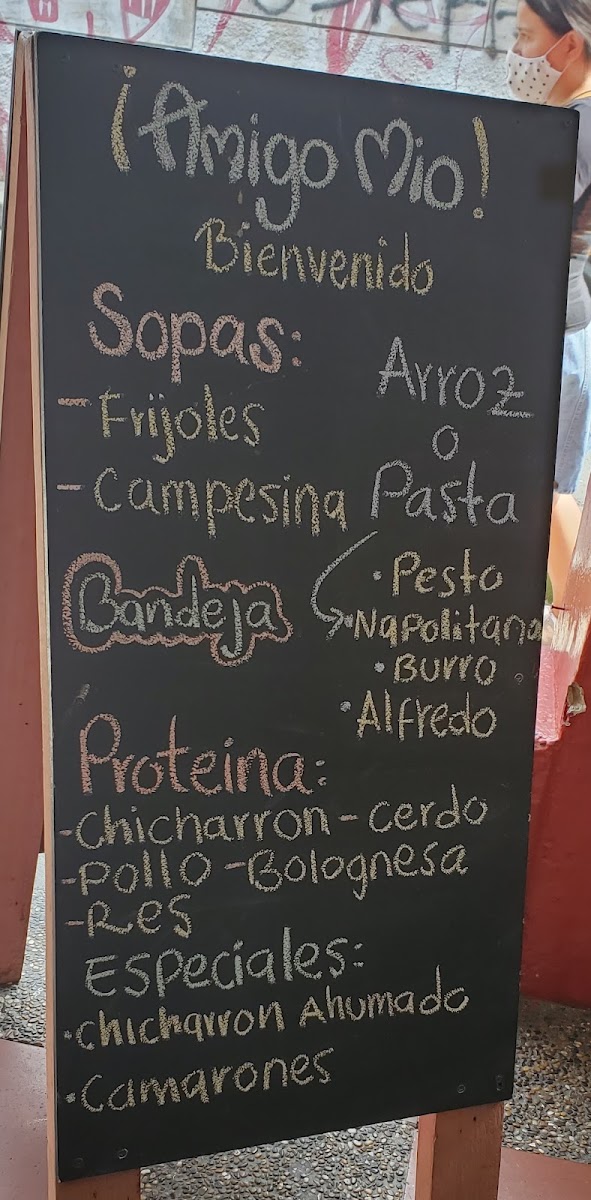 ¡Amigo Mio!
Bienvenido
Sopas:
- Frijoles
- Campesina
Arroz
o
Pasta
· Pesto
· Napolitana
· Burro
· Alfredo
Bandeja
Proteina:
- Chicharron - cerdo
- Pollo - Bolognesa
- Res
Especiales:
· chicharron Ahumado
· Camarones